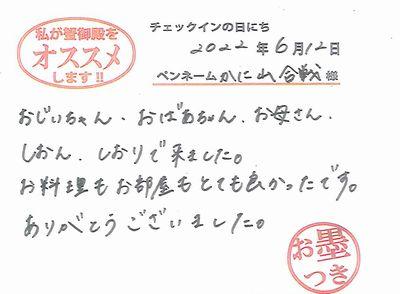 私が蟹御殿を
オススメ
します!!
チェックインの日にち
2022年6月12日
ペンネーム かに山合戦 様
おじいちゃん、おばあちゃん、お母さん、
しおん、しおりで来ました。
お料理もお部屋もとても良かったです。
ありがとうございました。
お墨
つき